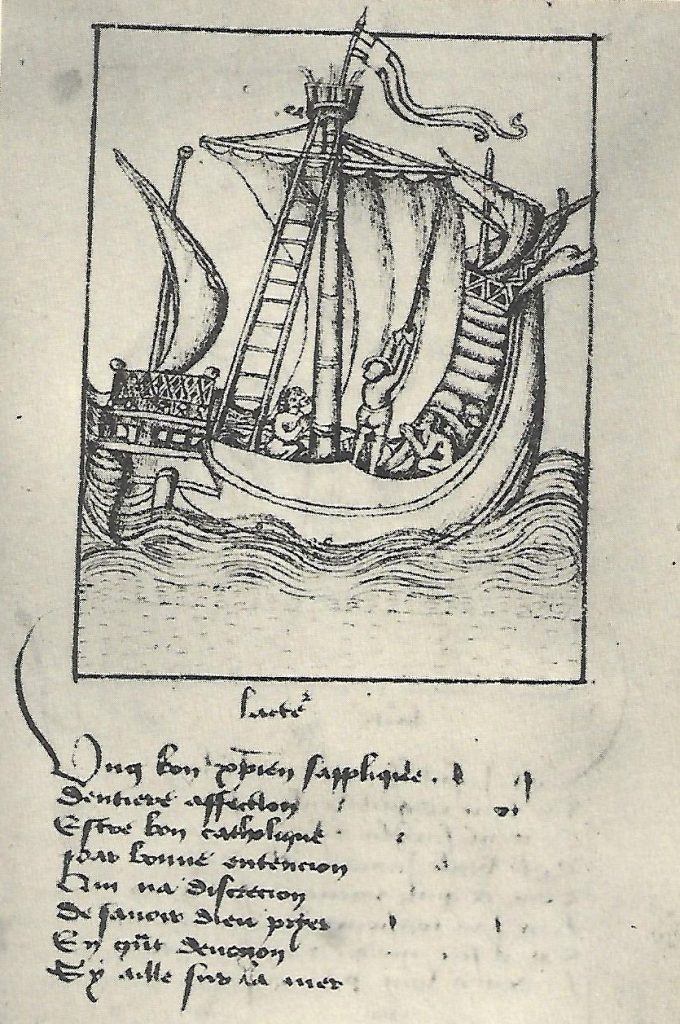 lacte^r
Ung bon xp̄ien sapplique
Dentiere affection
Estre bon catholique
Par bonne entencion
Qui na discrecion
De sauoir dieu prier
En gr̄t deuocion
Sy aille sur la mer